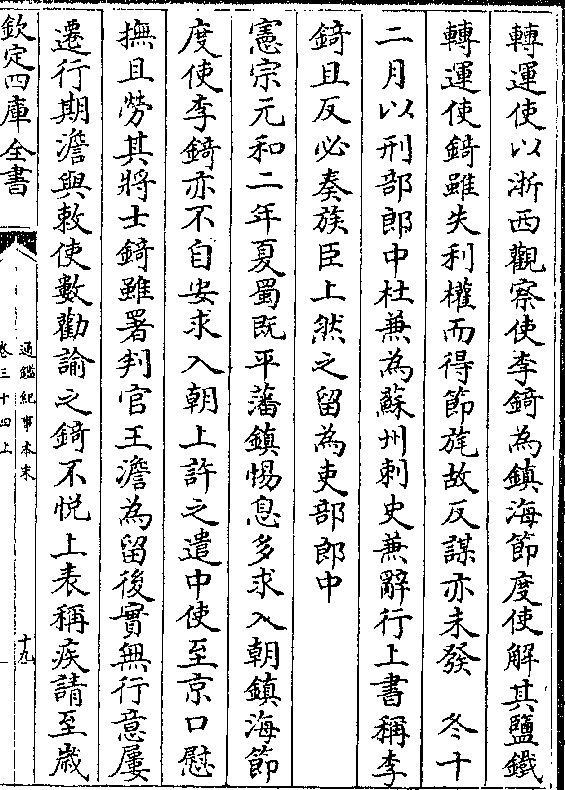 轉運使以浙西觀察使李錡為鎮海節度使解其鹽鐵
轉運使錡雖失利權而得節旄故反謀亦未發　冬十
二月以刑部郎中杜兼為蘇州刺史兼辭行上書稱李
錡且反必奏族臣上然之留為吏部郎中
憲宗元和二年夏蜀既平藩鎮惕息多求入朝鎮海節
度使李錡亦不自安求入朝上許之遣中使至京口慰
撫且勞其將士錡雖署判官王澹為留後實無行意屢
遷行期澹與敕使數勸諭之錡不悅上表稱疾請至歲
欽定四庫全書
通鑑紀事本末
卷三十四上
十九